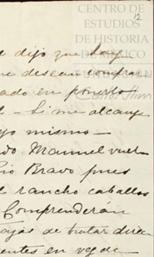 CENTRO DE
ESTUDIOS
DE HISTORIA
DE MÉXICO
12
dejó que hay
desean compra
ado en ponerlo
Si me alcanz
yo mismo —
do. Manuel vuel
Río Bravo pues
el rancho caballos
Comprenderán
tajas de tratar dire
entes en vez de